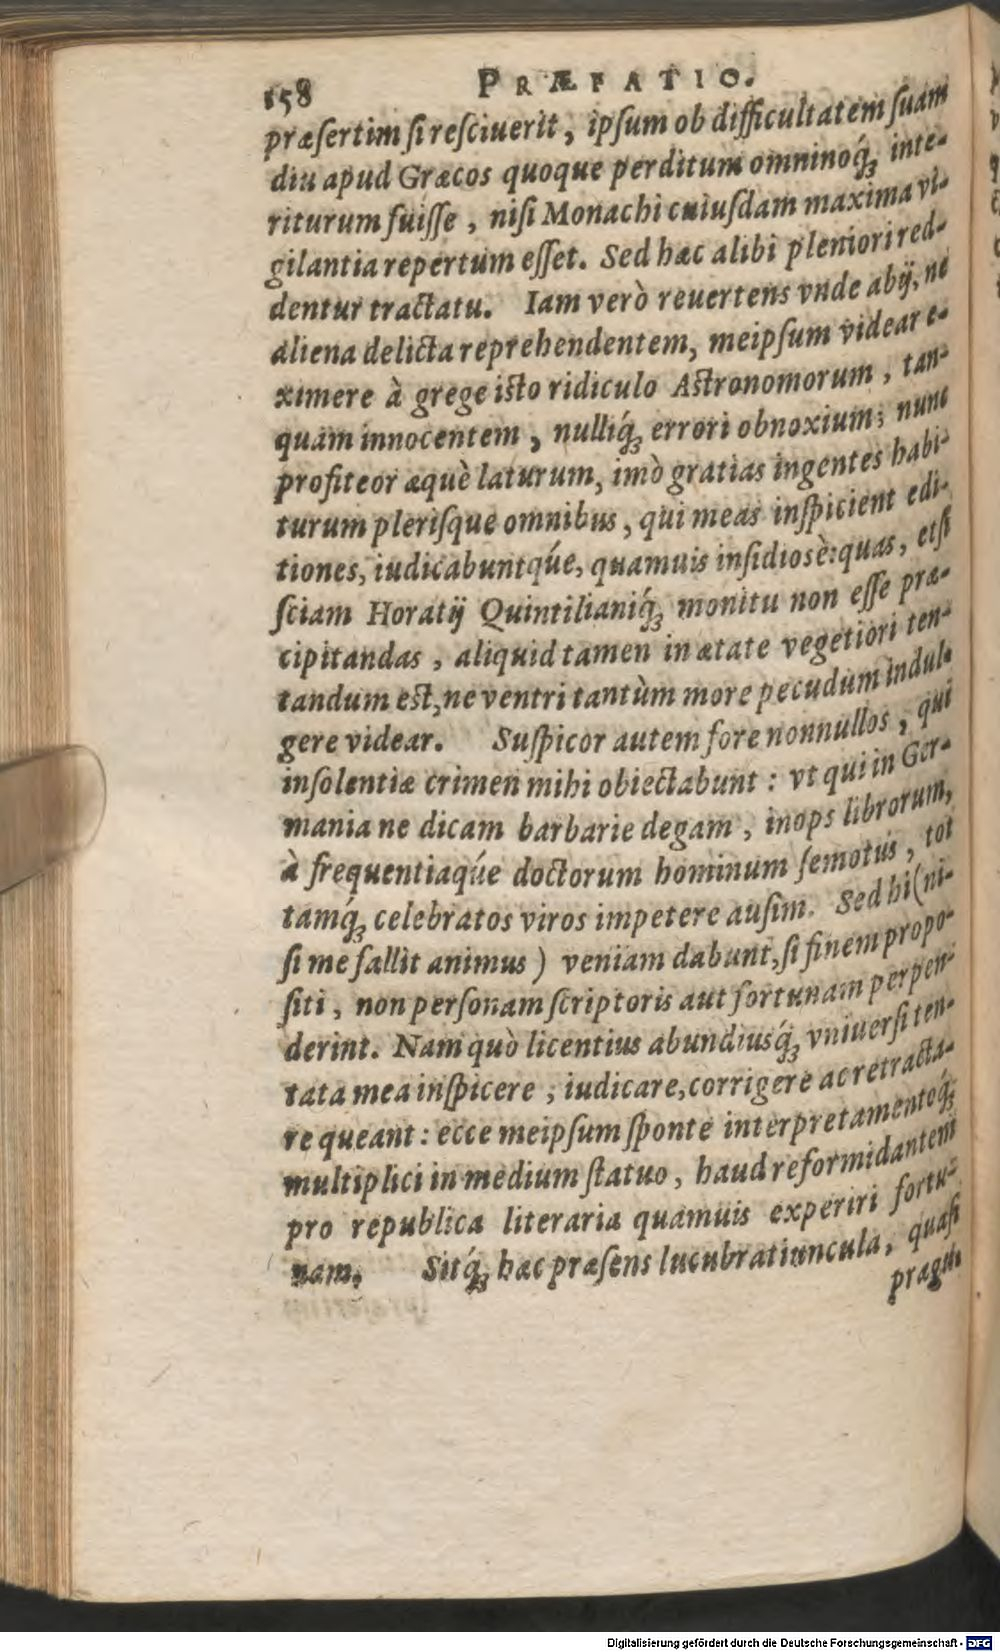 158 PRÆFATIO.
præſertim ſi reſciuerit, ipſum ob difficultatem ſuam
diu apud Græcos quoque perditum omninoq́; inte-
riturum fuiſſe, niſi Monachi cuiuſdam maxima vi-
gilantia repertum eſſet. Sed hæc alibi pleniori red-
dentur tractatu. Iam verò reuertens vnde abij, ne
aliena delicta reprehendentem, meipſum videar e-
ximere à grege iſto ridiculo Aſtronomorum, tan-
quam innocentem, nulliq́; errori obnoxium; nunc
profiteor æquè laturum, imò gratias ingentes habi-
turum pleriſque omnibus, qui meas inſpicient edi-
tiones, iudicabuntqúe, quamuis inſidiosè: quas, etſi
ſciam Horatij Quintilianiq́; monitu non eſſe præ-
cipitandas, aliquid tamen in ætate vegetiori ten-
tandum eſt, ne ventri tantùm more pecudum indul-
gere videar. Suſpicor autem fore nonnullos, qui
inſolentiæ crimen mihi obiectabunt: vt qui in Ger-
mania ne dicam barbarie degam, inops librorum,
à frequentiaqúe doctorum hominum ſemotus, tot
tamq́; celebratos viros impetere auſim. Sed hi (ni-
ſi me fallit animus) veniam dabunt, ſi finem propo-
ſiti, non perſonam ſcriptoris aut fortunam perpen-
derint. Nam quò licentius abundiusq́; vniuerſi ten-
tata mea inſpicere, iudicare, corrigere ac retracta-
re queant: ecce meipſum ſponte interpretamentoq́;
multiplici in medium ſtatuo, haud reformidantem
pro republica literaria quamuis experiri fortu-
nam. Sitq́; hæc præſens lucubratiuncula, quaſi
prægu-
Digitalisierung gefördert durch die Deutsche Forschungsgemeinschaft - DFG